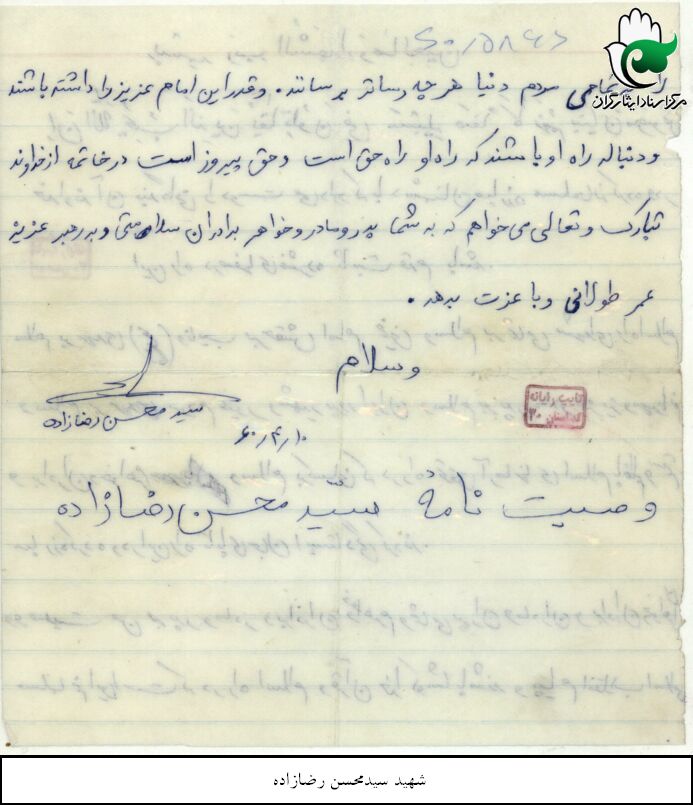 مرکز اسناد ایثارگران
را به تمامی مردم دنیا هر چه رساتر برسانند. و قدر این امام عزیز را داشته باشند
و دنباله راه او باشند که راه او راه حق است و حق پیروز است در خاتمه از خداوند
تبارک و تعالی می خواهم که به شما پدر و مادر و خواهر برادران سلامتی و به رهبر عزیز
عمر طولانی و با عزت بدهد.
وسلام
سید محسن رضازاده
۶۰/۴/۱۰
تایپ رایانه
۳۰
وصیت نامه سید محسن رضازاده
شهید سیدمحسن رضازاده